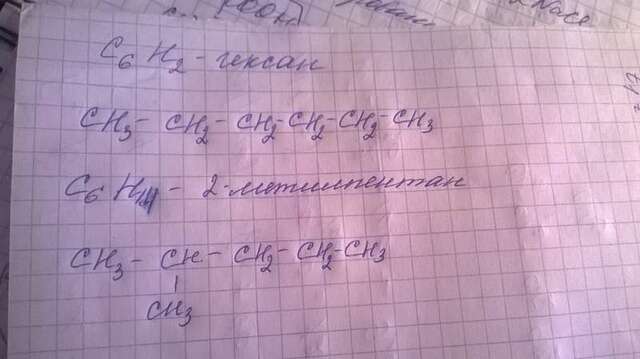 C₆H₂ - гексан
CH₃ - CH₂ - CH₂ - CH₂ - CH₂ - CH₃
C₆H₁₄ - 2-метилпентан
CH₃ - CH - CH₂ - CH₂ - CH₃
|
CH₃